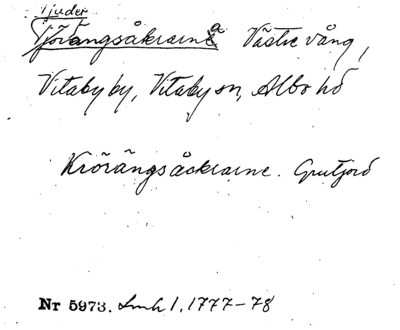 Tjuder
Tjörängsåkrarne a Västre vång,
Vitaby by, Vitaby sn, Albo hd
Kiörängsåckrarne. Grutjord
Nr 5973. Lmh 1. 1777–78